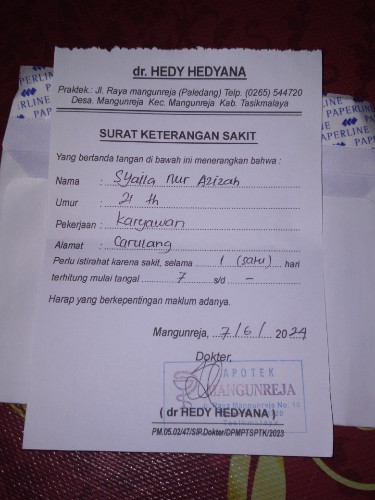 dr. HEDY HEDYANA
Praktek.: Jl. Raya mangunreja (Paledang) Telp. (0265) 544720
Desa. Mangunreja Kec. Mangunreja Kab. Tasikmalaya
SURAT KETERANGAN SAKIT
Yang bertanda tangan di bawah ini menerangkan bahwa :
Nama : Syalla Nur Azizah
Umur : 21 th
Pekerjaan : Karyawan
Alamat : Carulang
Perlu istirahat karena sakit, selama 1 (satu) hari
terhitung mulai tangal 7 s/d -
Harap yang berkepentingan maklum adanya.
Mangunreja, 7/6/2024
Dokter,
APOTEK
MANGUNREJA
Raya Mangunreja No. 10
Tasikmalaya
( dr HEDY HEDYANA )
PM.05.02/47/SIP.Dokter/DPMPTSPTK/2023
PAPERLINE
PAPERLINE
PAPERLINE